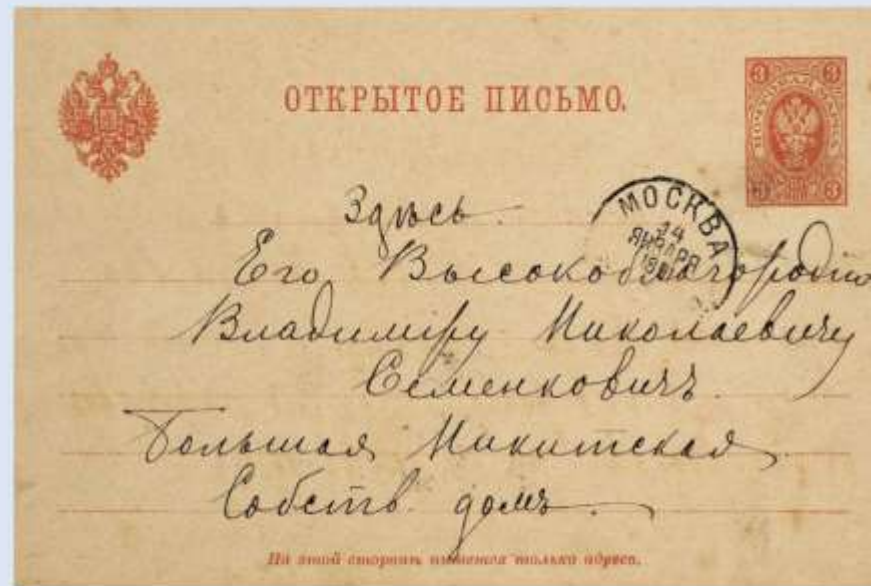 ОТКРЫТОЕ ПИСЬМО.
3 3
ПОЧТОВАЯ МАРКА
3 3
МОСКВА
14
ЯНВАРЯ
Здѣсь.
Его Высокоблагородію
Владиміру Николаевичу
Семенковичъ.
Большая Никитская
Собств. домъ.
На этой сторонѣ пишется только адресъ.